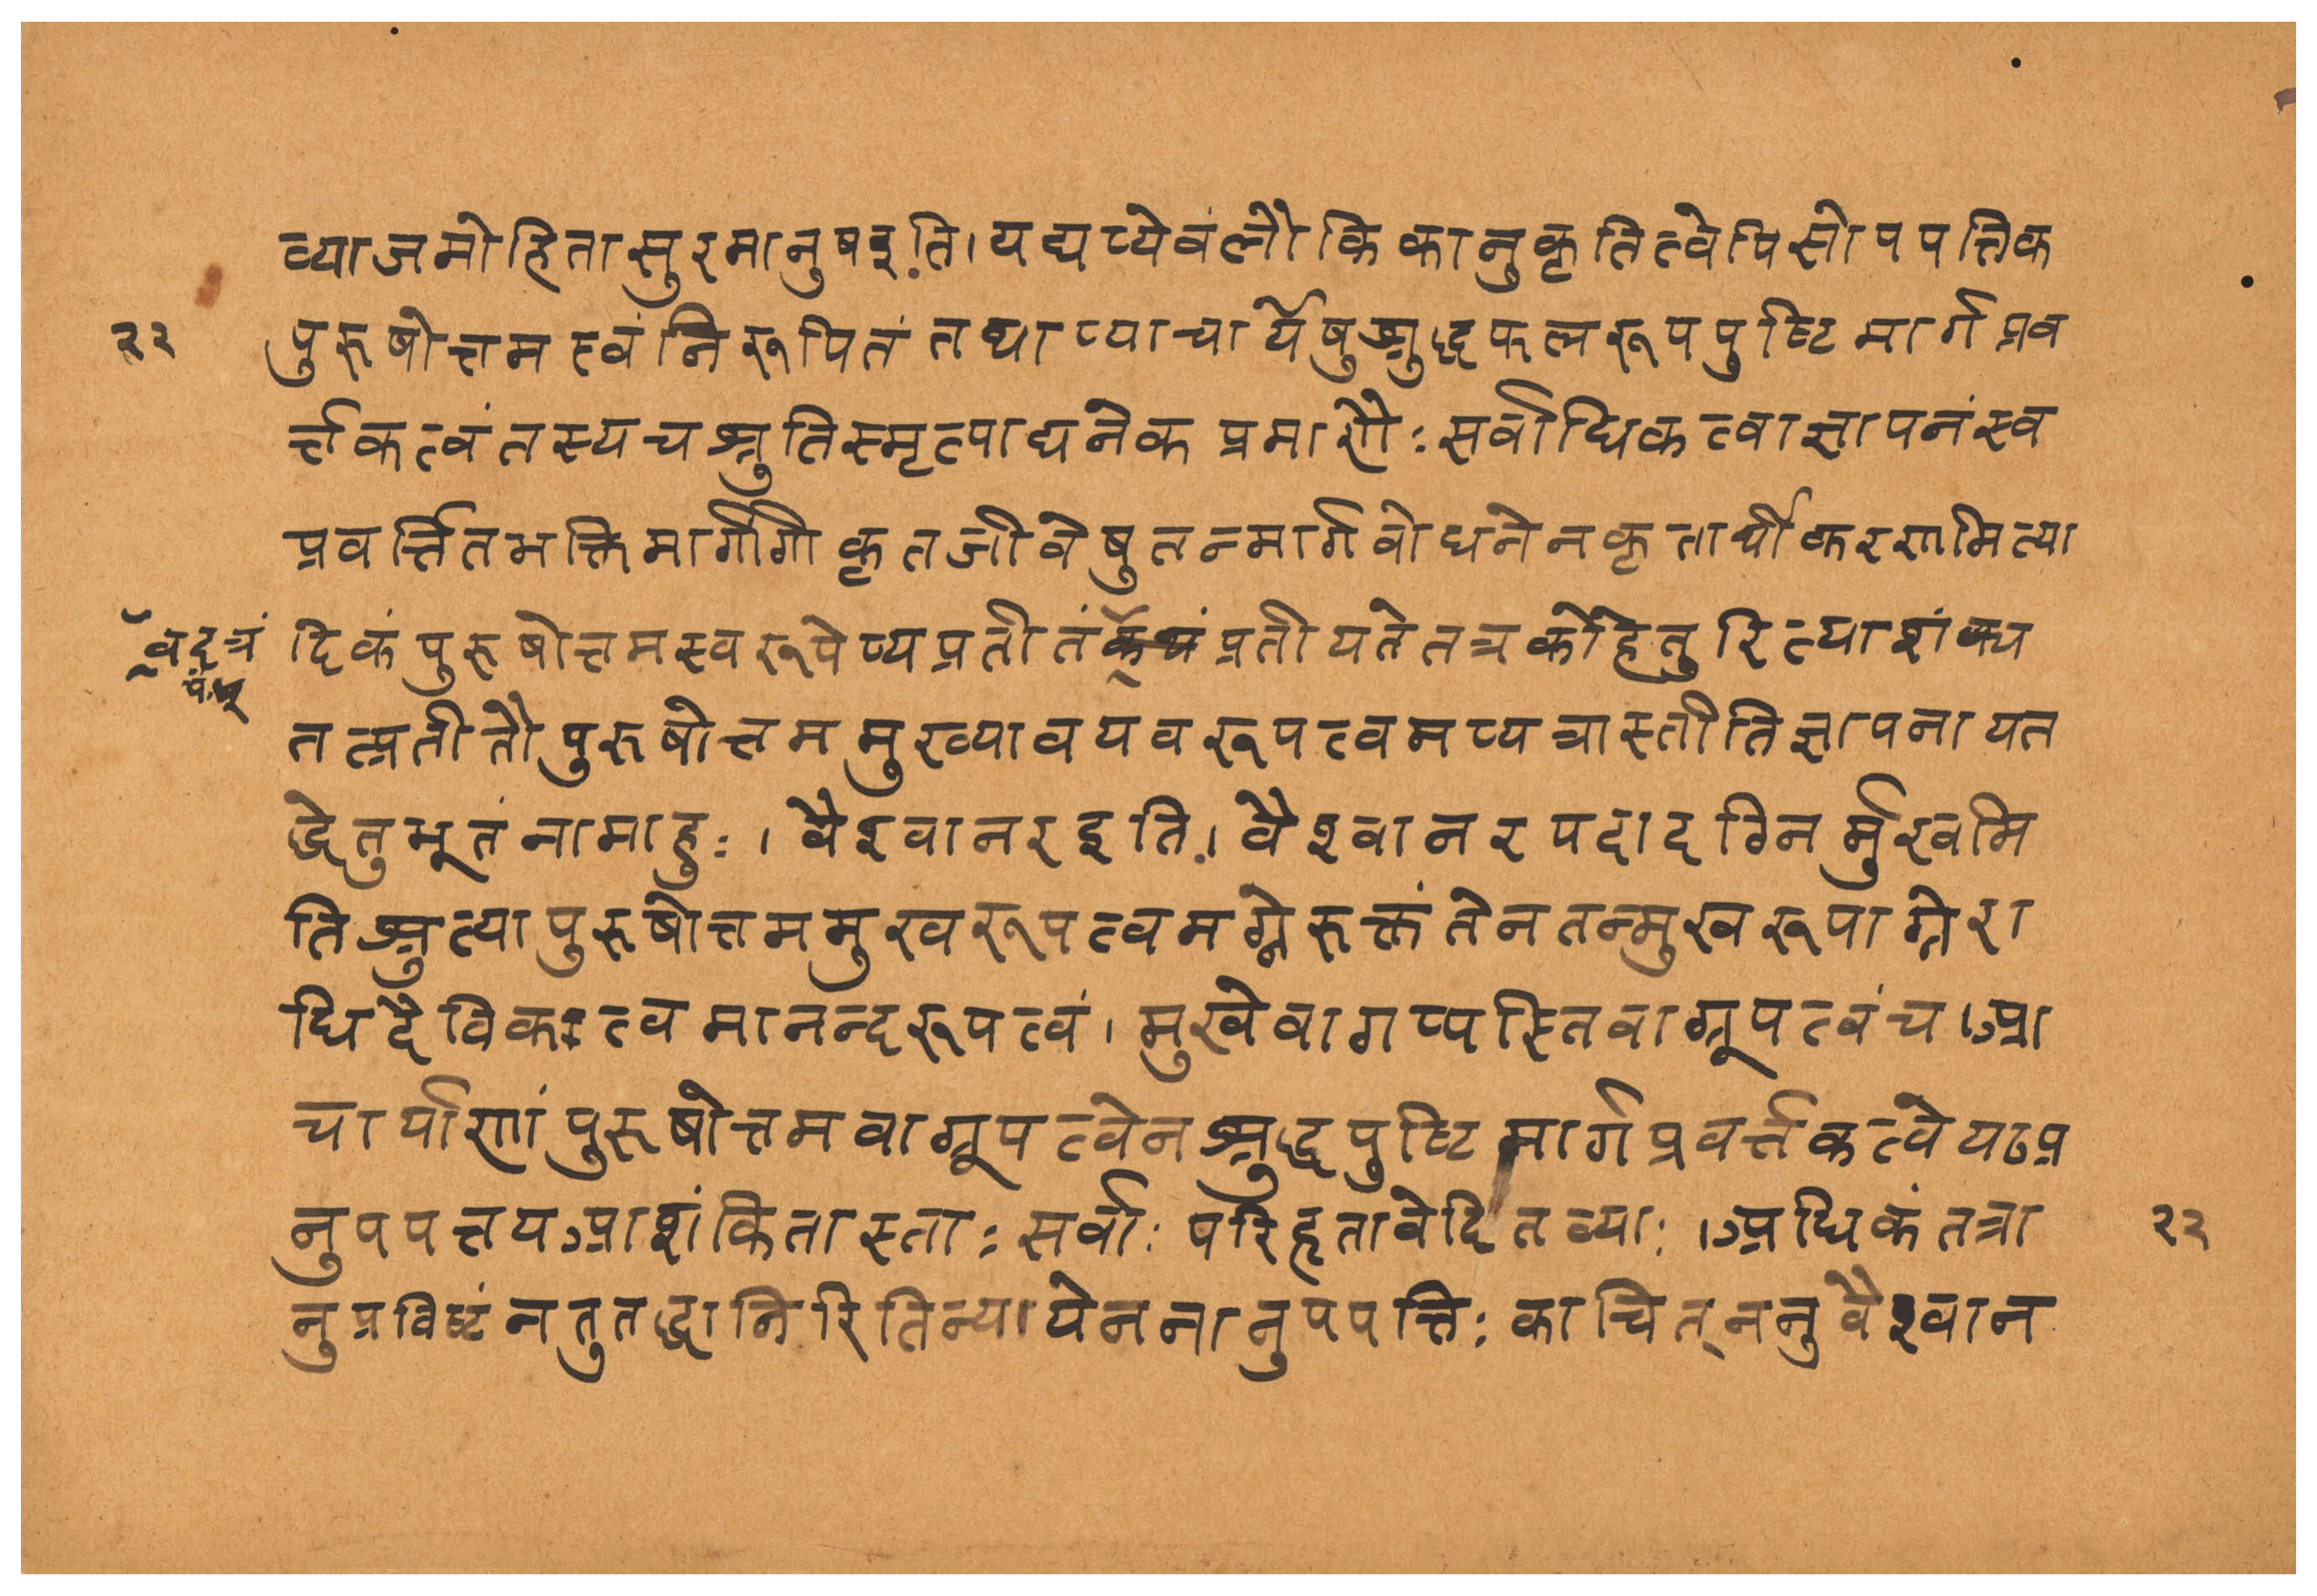 व्याजमोहितासुरमानुषइति। यद्यप्येवंलौकिकानुकृतित्वेपिसोपपत्तिक
२२ पुरुषोत्तमत्वंनिरूपितं तथाप्याचार्येषुशुद्धफलरूपपुष्टिमार्गप्रव
र्त्तकत्वंतस्यचश्रुतिस्मृत्याद्यनेकप्रमाणैः सर्वाधिकत्वाज्ञापनंस्व
प्रवर्त्तितभक्तिमार्गांगीकृतजीवेषुतन्मार्गबोधनेनकृतार्थीकरणमित्या
दिकंपुरुषोत्तमस्वरूपेप्यप्रतीतं प्रतीयतेतत्रकोहेतुरित्याशंक्य
तत्प्रतीतौपुरुषोत्तममुख्यावयवरूपत्वमप्यत्रास्तीतिज्ञापनायत
द्धेतुभूतंनामाहुः। वैश्वानरइति। वैश्वानरपदादग्निर्मुखमि
तिश्रुत्यापुरुषोत्तममुखरूपत्वमग्नेरुक्तंतेनतन्मुखरूपाग्नेरा
धिदैविकत्वमानन्दरूपत्वं। मुखेवागप्यस्तिवाग्रूपत्वंच।आ
चार्याणांपुरुषोत्तमवाग्रूपत्वेनशुद्धपुष्टिमार्गप्रवर्त्तकत्वेयाअ
नुपपत्तयआशंकितास्ताः सर्वाः परिहृतावेदितव्याः।अधिकंतत्रा २२
नुप्रविष्टंनतुतद्धानिरितिन्यायेननानुपपत्तिः काचित्ननुवैश्वान